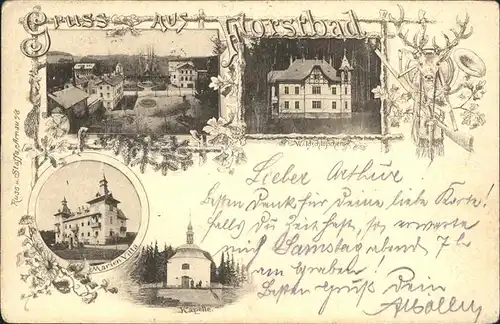 Gruss aus Forstbad
Marien Villa
Kapelle
Lieber Arthur
Besten Dank für Deine liebe Karte!
falls Du Zeit hast, so erwarte
mich Samstag abend 7 h
am Graben!
Besten Gruß Dein